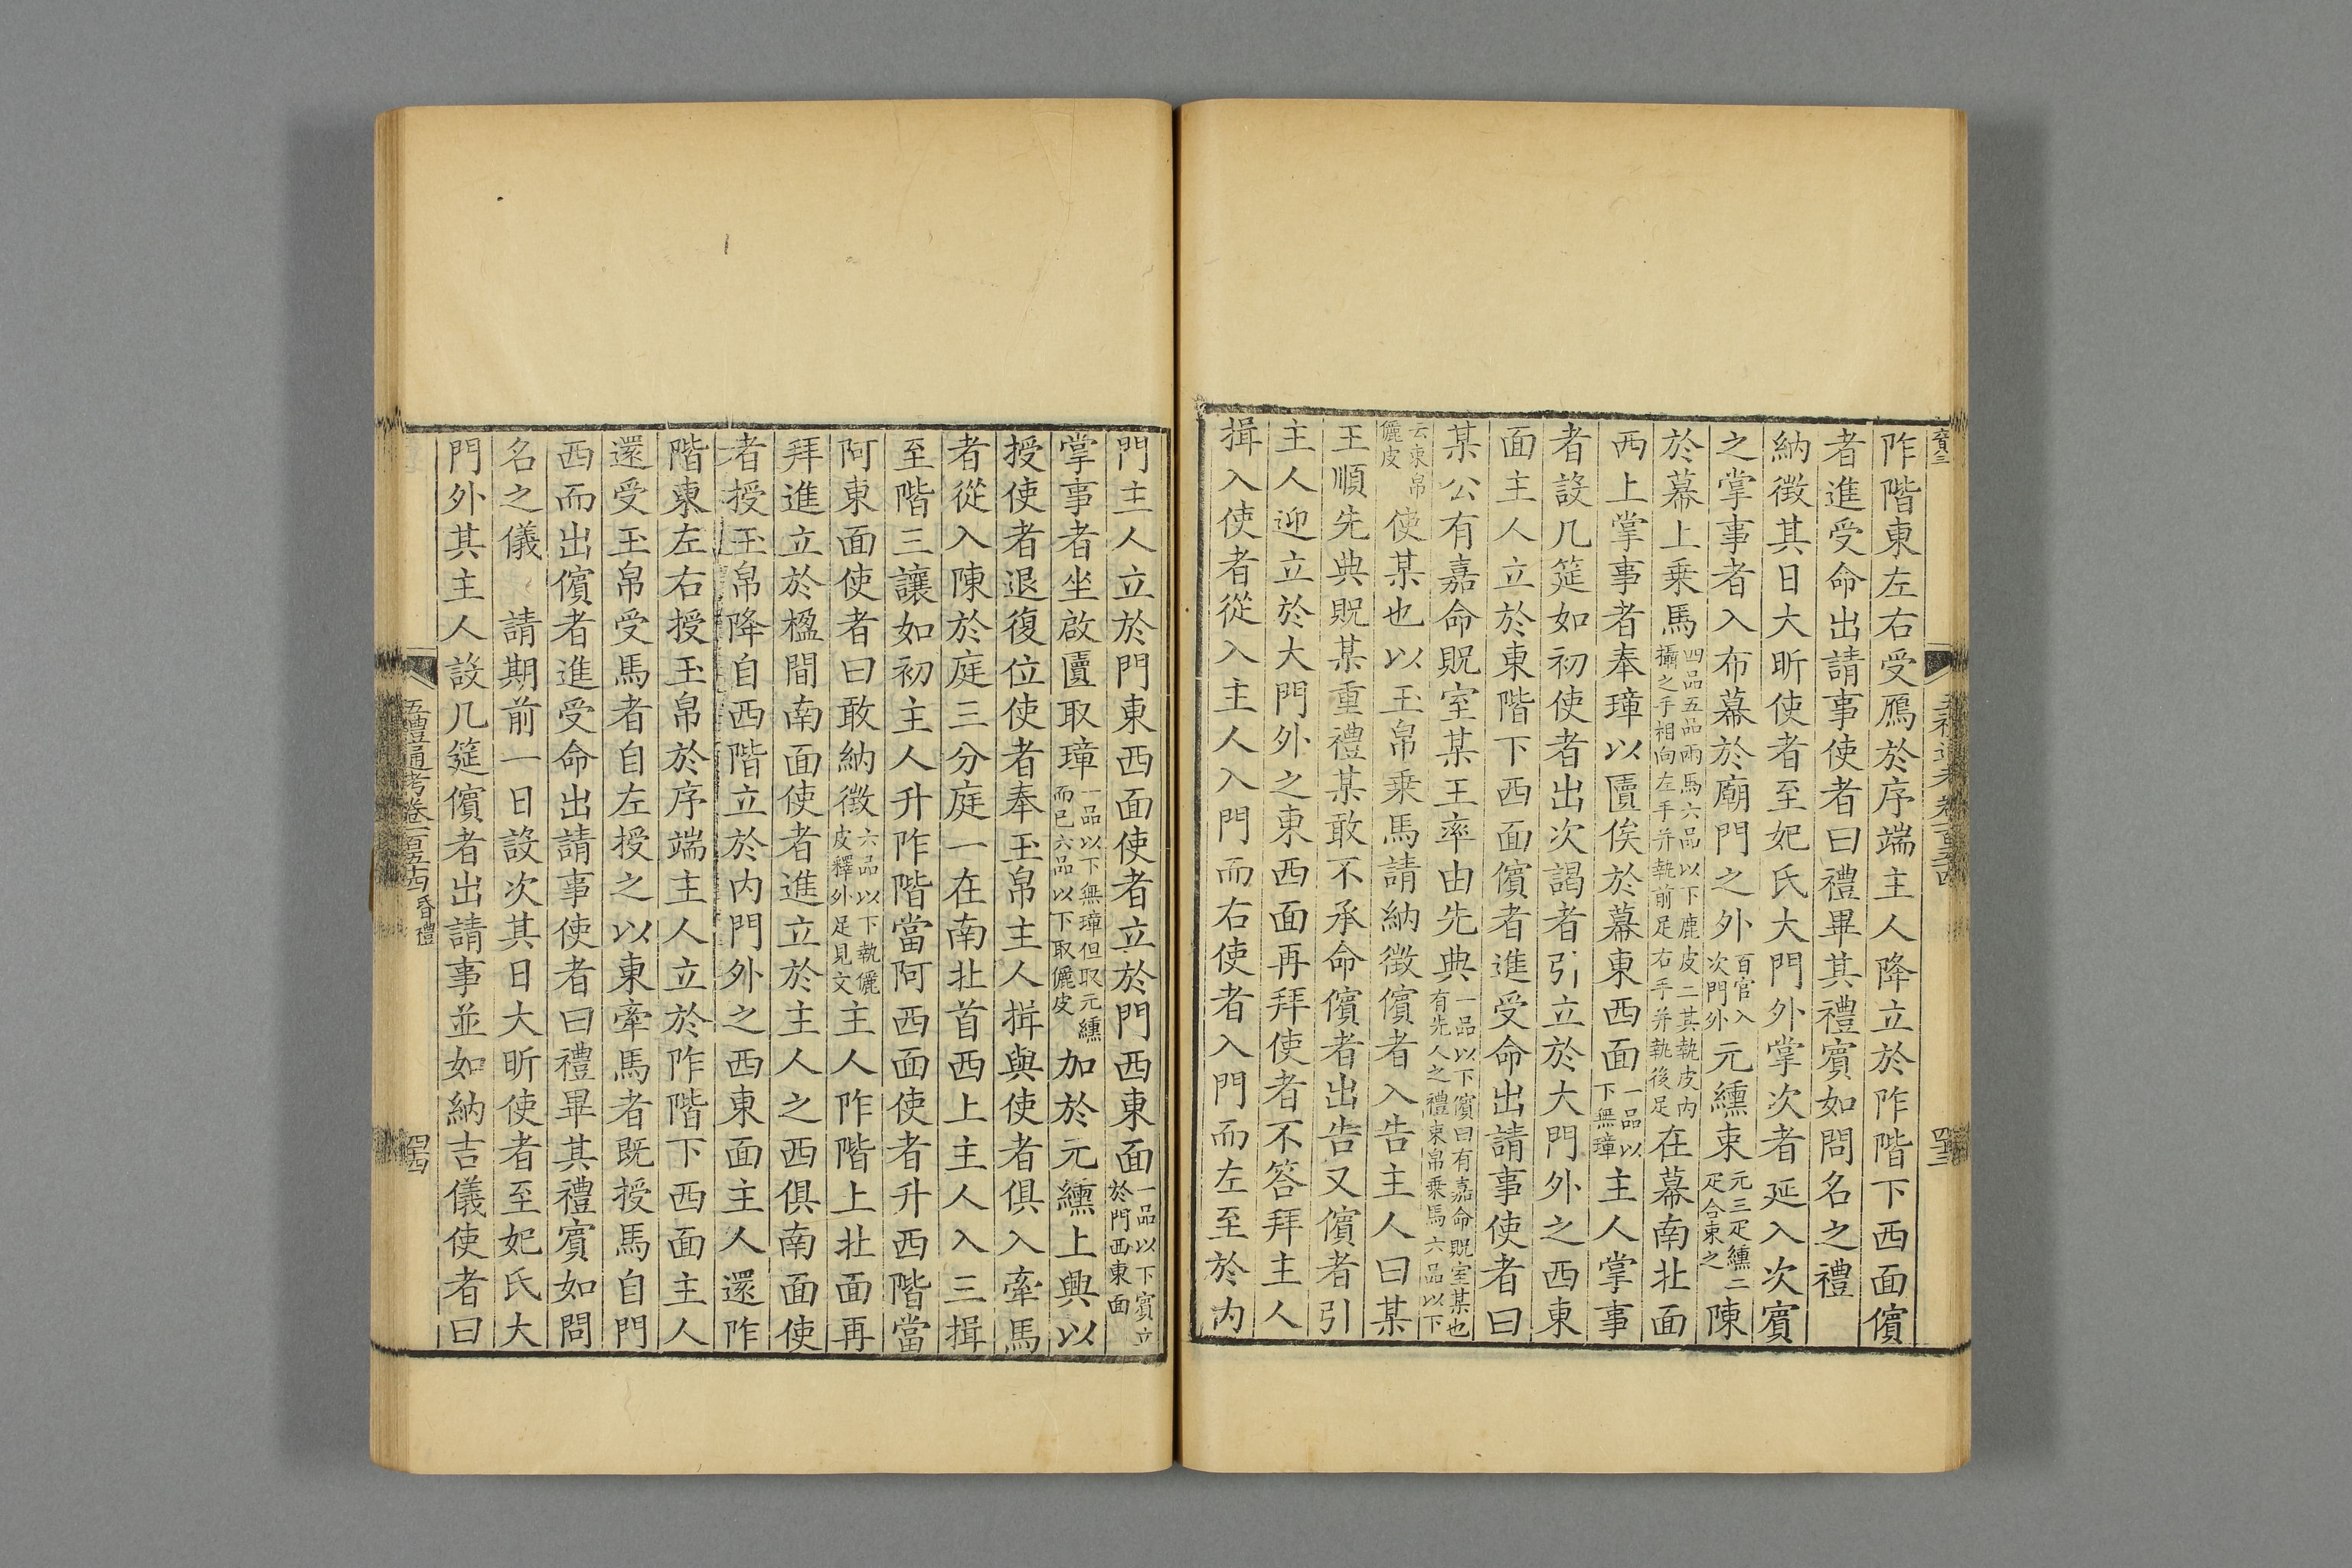 阼階東左右受鴈於序端主人降立於阼階下西面儐
者進受命出請事使者曰禮畢其禮賓如問名之禮
納徵其日大昕使者至妃氏大門外掌次者延入次賓
之掌事者入布幕於廟門之外百官入次門外元纁束元三疋纁二疋合束之陳
於幕上乗馬四品五品兩馬六品以下鹿皮二其執皮內攝之手相向左手并執前足右手并執後足在幕南北面
西上掌事者奉璋以匵俟於幕東西面一品以下無璋主人掌事
者設几筵如初使者出次謁者引立於大門外之西東
面主人立於東階下西面儐者進受命出請事使者曰
某公有嘉命貺室某王率由先典一品以下儐曰有嘉命貺室某也有先人之禮束帛乗馬六品以下
云束帛儷皮使某也以玉帛乗馬請納徵儐者入告主人曰某
王順先典貺某重禮某敢不承命儐者出告又儐者引
主人迎立於大門外之東西面再拜使者不答拜主人
揖入使者從入主人入門而右使者入門而左至於內
門主人立於門東西面使者立於門西東面一品以下賓立於門西東面
掌事者坐啟匵取璋一品以下無璋但取元纁而已六品以下取儷皮加於元纁上興以
授使者退復位使者奉玉帛主人揖與使者俱入牽馬
者從入陳於庭三分庭一在南北首西上主人入三揖
至階三讓如初主人升阼階當阿西面使者升西階當
阿東面使者曰敢納徵六品以下執儷皮釋外足見文主人阼階上北面再
拜進立於楹間南面使者進立於主人之西俱南面使
者授玉帛降自西階立於內門外之西東面主人還阼
階東左右授玉帛於序端主人立於阼階下西面主人
還受玉帛受馬者自左授之以東牽馬者既授馬自門
西而出儐者進受命出請事使者曰禮畢其禮賓如問
名之儀 請期前一日設次其日大昕使者至妃氏大
門外其主人設几筵儐者出請事並如納吉儀使者曰
五禮通考卷一百五十四 昏禮